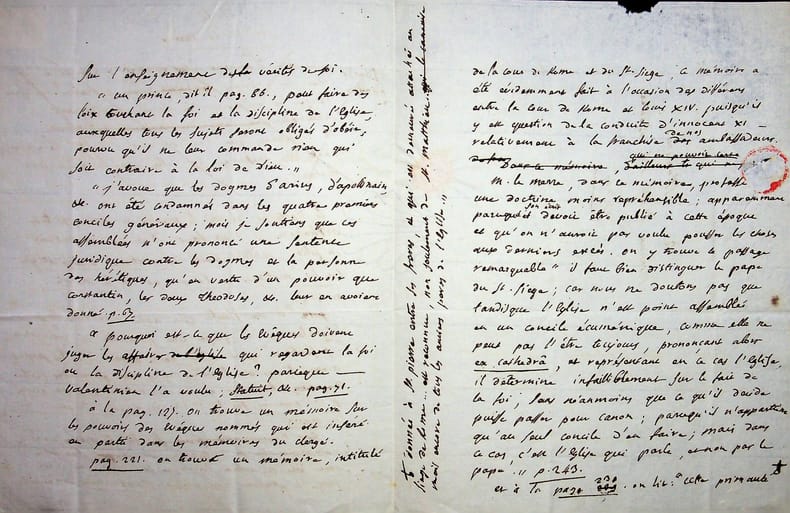 Sur l'enseignement des vérités de foi.
« un prince, dit il pag. 86., peut faire des
loix touchant la foi et la discipline de l'Eglise,
auxquelles tous les sujets seront obligés d'obéir,
pourvu qu'il ne leur commande rien qui
soit contraire à la loi de Dieu. »
« j'avoue que les dogmes d'arius, d'apollinaire,
&c. ont été condamnés dans les quatre premiers
conciles généraux; mais je soutiens que ces
assemblées n'ont prononcé une sentence
juridique contre les dogmes et la personne
des hérétiques, qu'en vertu d'un pouvoir que
constantin, les deux theodoses, &c. leur en avoient
donné. p. 67
« pourquoi est-ce que les Evêques doivent
juger les affaires de l'Eglise qui regardent la foi
ou la discipline de l'Eglise? parceque
valentinien l'a voulu; statuit, &c. pag. 71.
à la pag. 127. on trouve un mémoire sur
les pouvoirs des Evêques nommés qui est inséré
en partie dans les mémoires du clergé.
pag. 221. on trouve un mémoire, intitulé
de la cour de Rome et du St. Siege. Ce mémoire a
été évidemment fait à l'occasion des différens
entre la cour de Rome et Louis XIV. puisqu'il
y est question de la conduite d'innocent XI
relativement à la franchise de nos ambassadeurs.
dans le mémoire, d'ailleurs
M. le merre, dans ce mémoire, professe
une doctrine moins repréhensible; apparemment
parceque son écrit devoit être publié à cette époque
et qu'on n'auroit pas voulu pousser les choses
aux derniers excés. on y trouve le passage
remarquable « il faut bien distinguer le pape
du St. Siege; car nous ne doutons pas que
tandisque l'Eglise n'est point assemblée
en un concile écuménique, comme elle ne
peut pas l'être toujours, prononçant alors
ex cathedrâ, et représentant en ce cas l'Eglise,
il détermine infailliblement sur le fait de
la foi; sans néanmoins que ce qu'il décide
puisse passer pour canon; parcequ'il n'appartient
qu'au seul concile d'en faire; mais dans
ce cas c'est l'Eglise qui parle, et non pas le
pape. » p. 243.
et à la page 230. on lit: « cette primauté
donnée à St. pierre entre les freres, et qui est demeurée attachée au
siege de Rome... est reconnue, non seulement de St. matthieu
mais encore de tous les anciens peres de l'Eglise. »